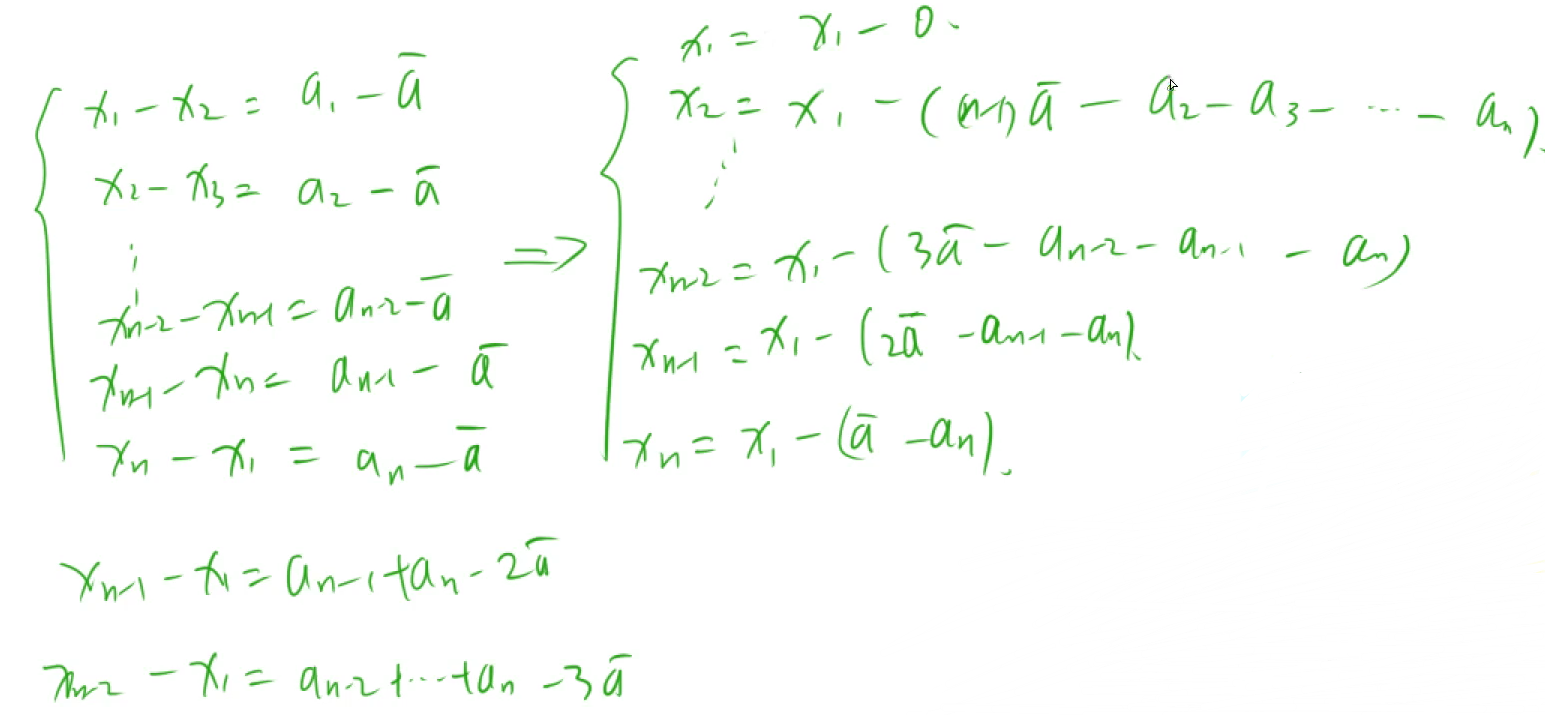 x₁ - x₂ = a₁ - ā
x₂ - x₃ = a₂ - ā
⋮
xₙ₋₂ - xₙ₋₁ = aₙ₋₂ - ā
xₙ₋₁ - xₙ = aₙ₋₁ - ā
xₙ - x₁ = aₙ - ā
⇒
x₁ = x₁ - 0.
x₂ = x₁ - ((n-1)ā - a₂ - a₃ - ⋯ - aₙ).
⋮
xₙ₋₂ = x₁ - (3ā - aₙ₋₂ - aₙ₋₁ - aₙ)
xₙ₋₁ = x₁ - (2ā - aₙ₋₁ - aₙ).
xₙ = x₁ - (ā - aₙ).
xₙ₋₁ - x₁ = aₙ₋₁ + aₙ - 2ā
xₙ₋₂ - x₁ = aₙ₋₂ + ⋯ + aₙ - 3ā